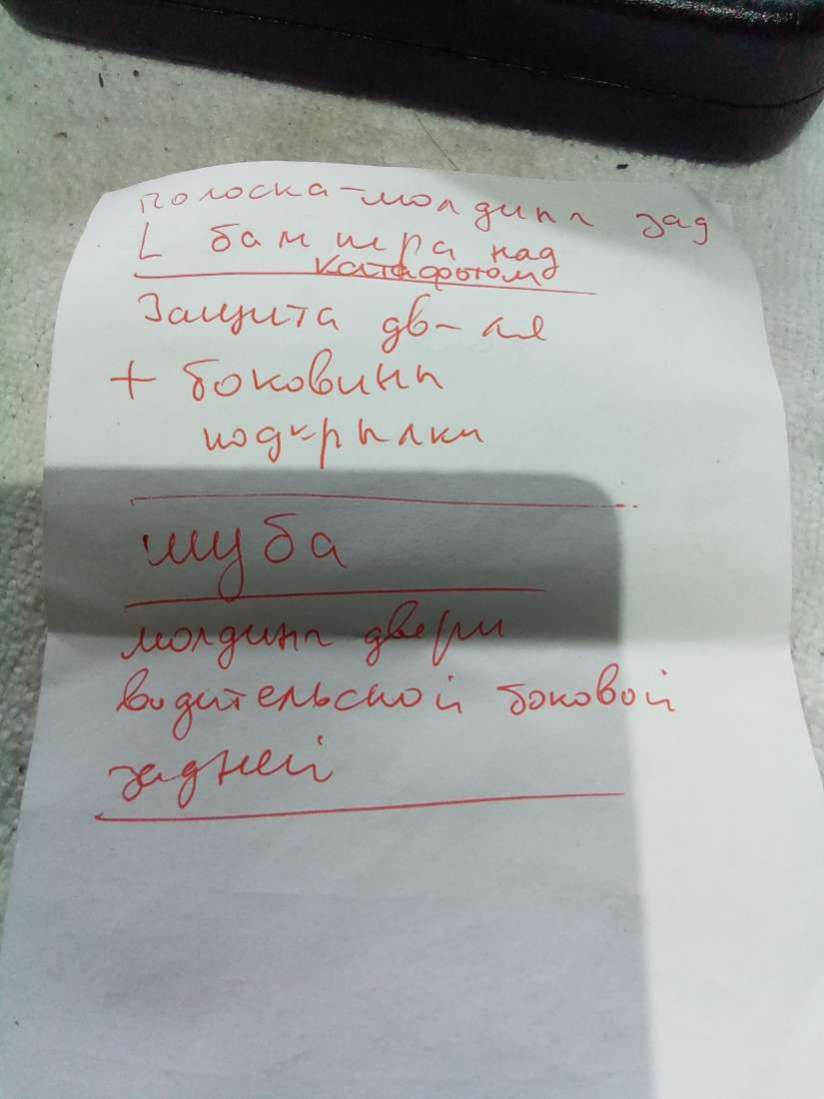 полоска-молдинг зад
L бампера над
катафотом
Защита дв-ля
+ боковины
подкрылки
шуба
молдинг двери
водительской боковой
задней